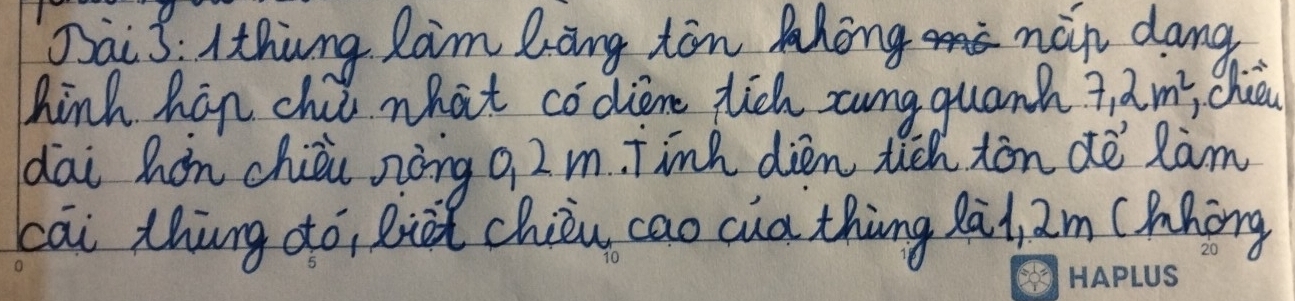 Bài 3: 1 thùng làm bằng tôn không nắp dạng
hình hộp chữ nhật có diện tích xung quanh 7,2m², chiều
dài hơn chiều rộng 0,2 m. Tính diện tích tôn để làm
cái thùng đó, biết chiều cao của thùng là 1,2m (không
0 5 10 15 20
HAPLUS